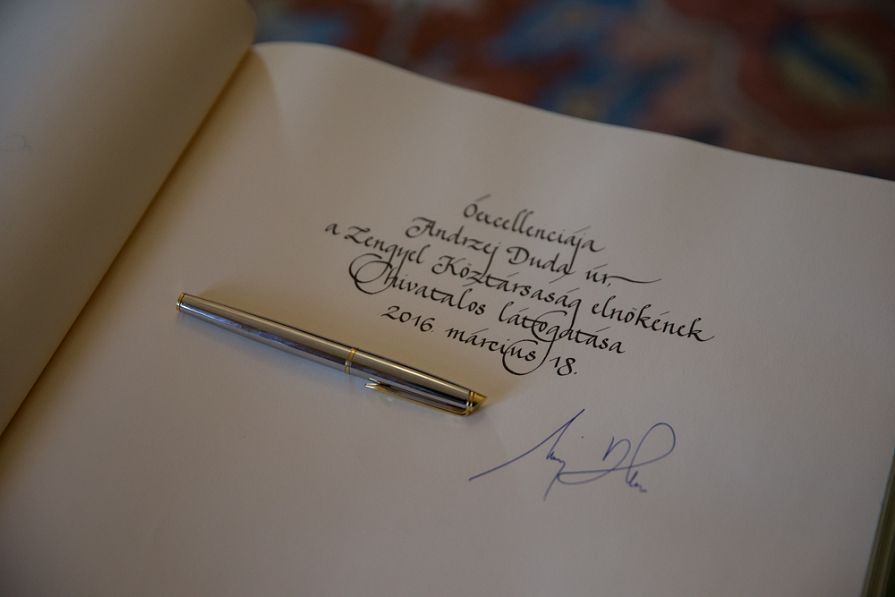 Őexcellenciája
Andrzej Duda úr,
a Lengyel Köztársaság elnökének
hivatalos látogatása
2016. március 18.